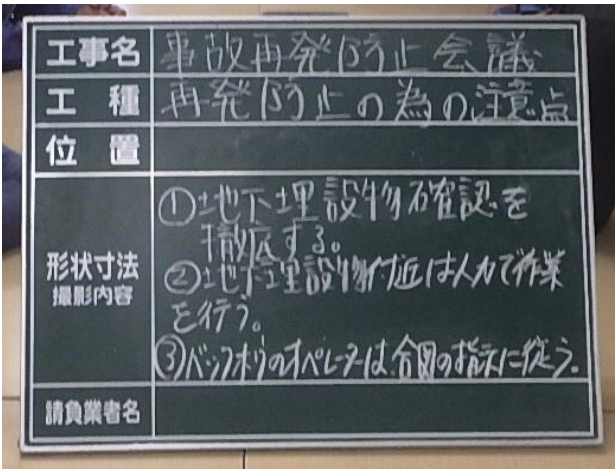 工事名 事故再発防止会議
工種 再発防止の為の注意点
位置
形状寸法
撮影内容
①地下埋設物確認を
徹底する。
②地下埋設物付近は人力で作業
を行う。
③バックホウのオペレーターは合図の指示に従う。
請負業者名